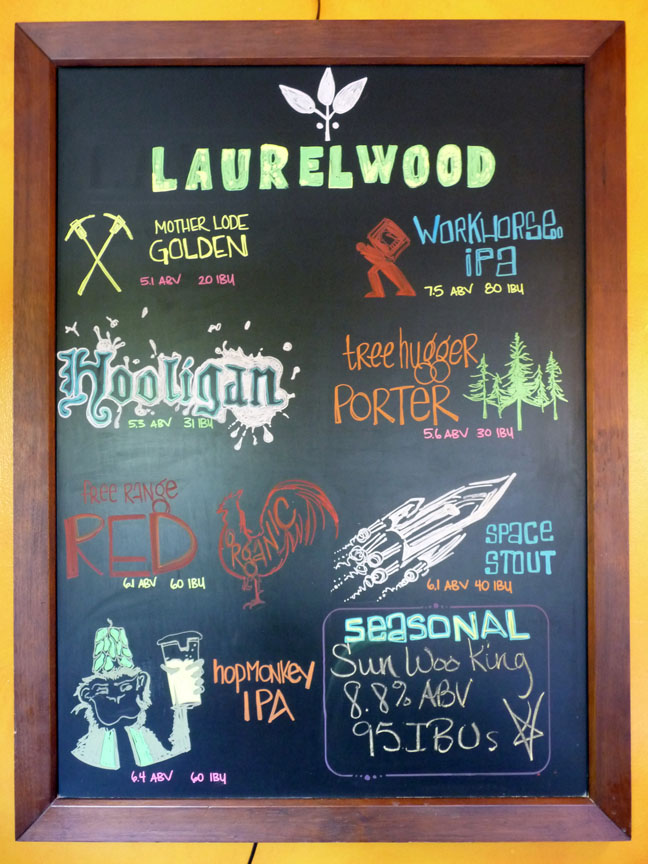 LAURELWOOD
MOTHER LODE
GOLDEN
5.1 ABV 20 IBU
WORKHORSE
IPA
7.5 ABV 80 IBU
Hooligan
5.3 ABV 31 IBU
tree hugger
PORTER
5.6 ABV 30 IBU
free Range
RED
6.1 ABV 60 IBU
ORGANIC
SPACE
STOUT
6.1 ABV 40 IBU
hopmonkey
IPA
6.4 ABV 60 IBU
SeaSONAL
Sun Woo King
8.8% ABV
95 IBUs